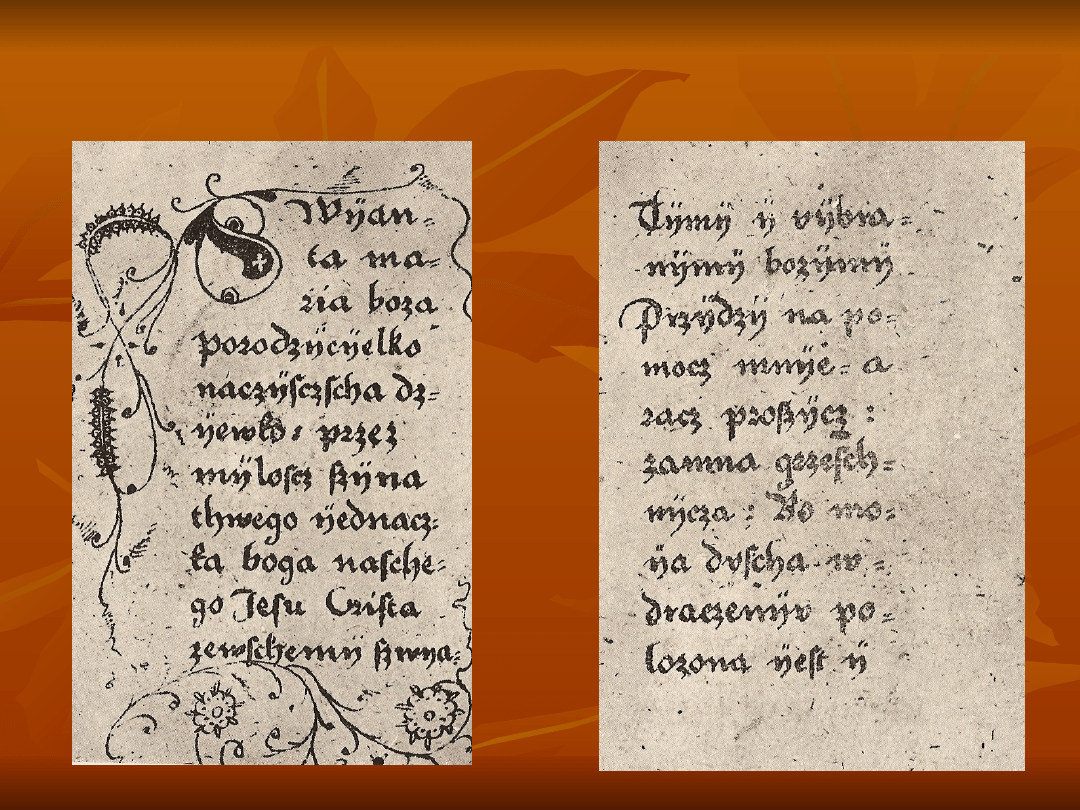 Wÿan-
ta ma-
ria boza
porodzÿcÿelko
naczÿsczscha dz-
ÿewko: przez
mÿloscz szÿna
thwego ÿednacz-
ka boga nasche-
go Jesu Crista
zewschemÿ szwya-
Tÿmÿ ÿ vÿbra-
nÿmÿ bozÿmÿ
Przÿdzÿ na po-
mocz mnÿe: a
racz proszÿcz:
zamna grzesch-
nÿcza: Bo mo-
ÿa dvscha w-
draczenÿv po-
lozona ÿest ÿ